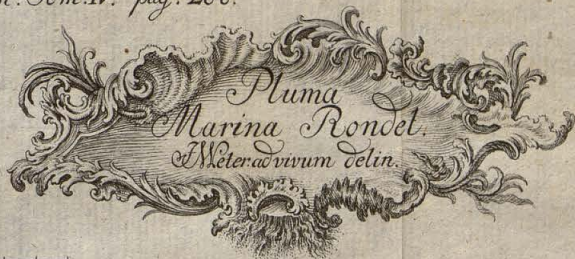 Tom. IV. pag. 200.
Pluma
Marina Rondel.
Meter ad vivum delin.